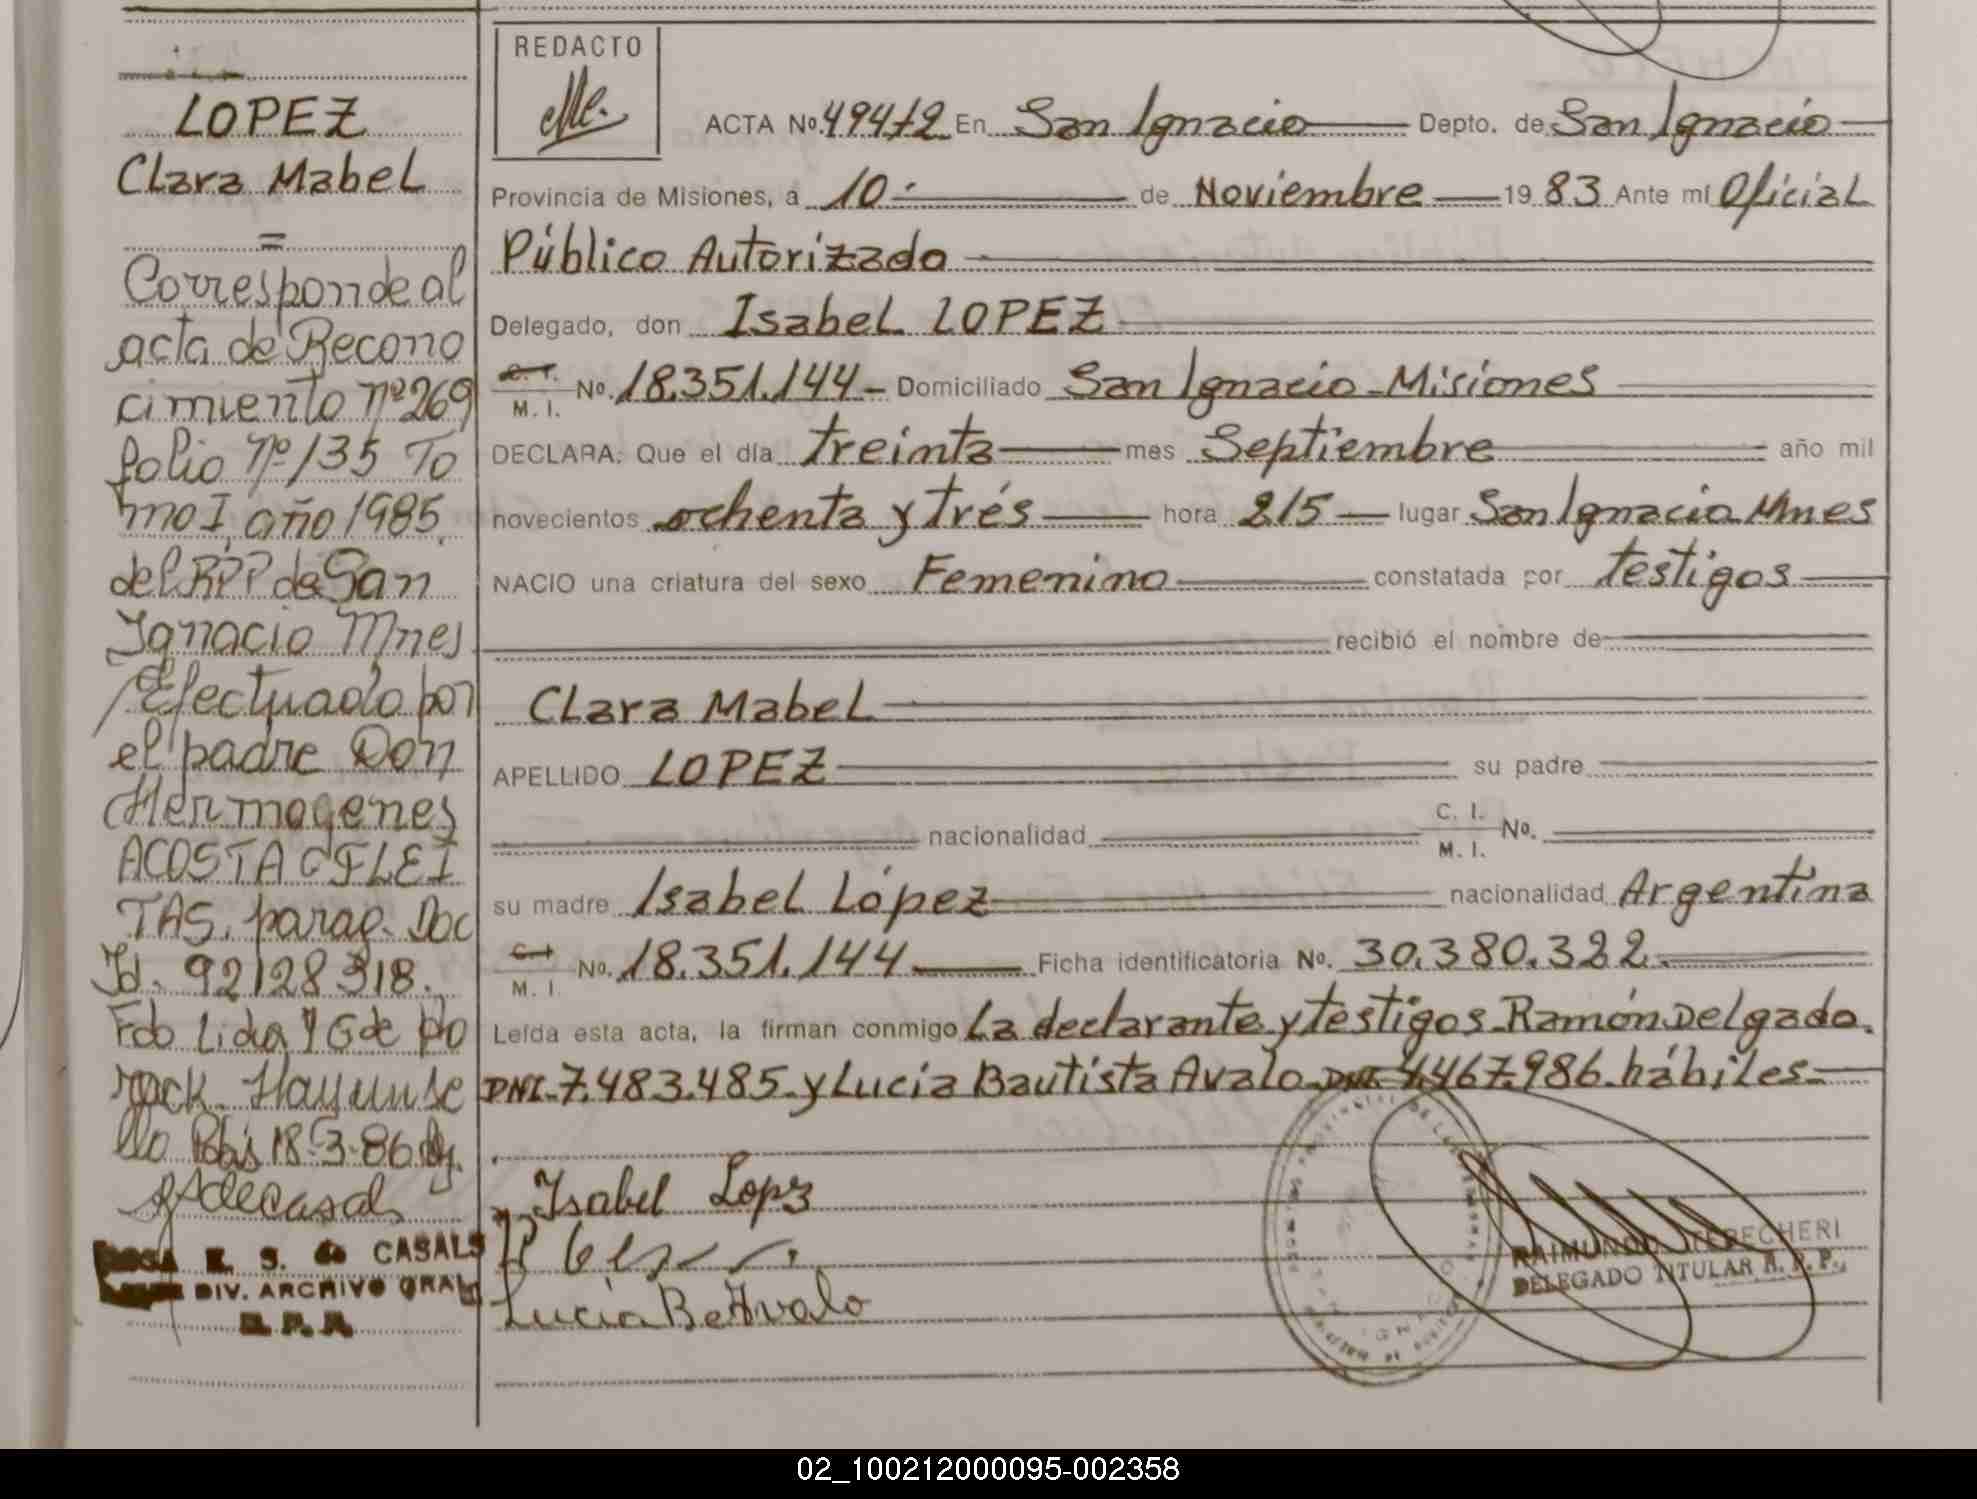 LOPEZ
Clara Mabel
=
Corresponde al
acta de Recono
cimiento nº 269
folio nº 135 To
mo I, año 1985.
del RPP de San
Ignacio Mnes
Efectuado por
el padre Don
Hermogenes
ACOSTA
TAS. parag. Doc
Id. 92128318.
18-3-86
CASALS
DIV. ARCHIVO GRAL
R. P. P.
REDACTO
ACTA Nº. 494 En San Ignacio Depto. de San Ignacio
Provincia de Misiones, a 10 de Noviembre 19 83 Ante mí Oficial
Público Autorizado
Delegado, don Isabel LOPEZ
C. I.
M. I. Nº. 18.351.144 - Domiciliado San Ignacio - Misiones
DECLARA: Que el día treinta mes Septiembre año mil
novecientos ochenta y trés hora 215 lugar San Ignacio Mnes
NACIO una criatura del sexo Femenino constatada por testigos
recibió el nombre de
Clara Mabel
APELLIDO LOPEZ su padre
nacionalidad C. I.
M. I. Nº.
su madre Isabel López nacionalidad Argentina
C. I.
M. I. Nº. 18.351.144 Ficha identificatoria Nº. 30.380.322.
Leída esta acta, la firman conmigo La declarante y testigos - Ramón Delgado.
DNI - 7.483.485 - y Lucia Bautista Avalo - hábiles -
Isabel Lopz
Lucia Be Avalo
RAIMUNDO
DELEGADO TITULAR R. P. P.
02_100212000095-002358